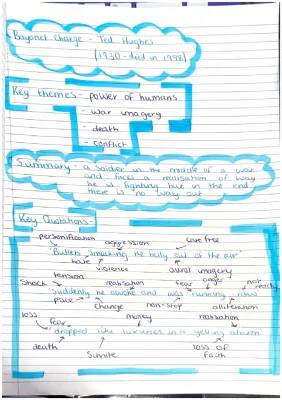 Bayonet Charge - Ted Hughes
(1930 - died in 1998)
Key themes - power of humans
- war imagery
- death
- conflict
Summary - a soldier in the middle of a war
and faces a realisation of why
he is fighting but in the end
there is no way out
Key Quotations -
personification aggression care free
"Bullets smacking the belly out of the air"
hate violence aural imagery
tension
Shock realisation fear anger not ready
Suddenly he awoke and was running - raw
pace change non-stop alliteration
loss fear money realisation
dropped like luxuries in a yelling alarm
death Simile loss of
faith